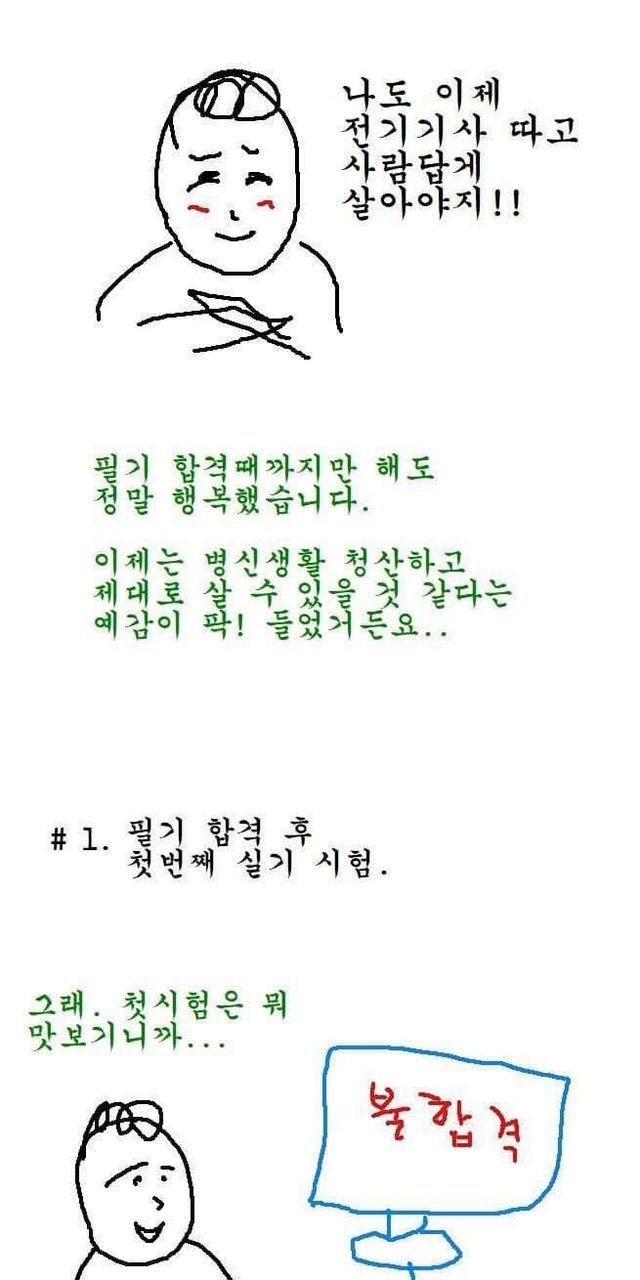 나도 이제
전기기사 따고
사람답게
살아야지!!
필기 합격때까지만 해도
정말 행복했습니다.
이제는 병신생활 청산하고
제대로 살 수 있을 것 같다는
예감이 팍! 들었거든요..
#1. 필기 합격 후
첫번째 실기 시험.
그래. 첫시험은 뭐
맛보기니까...
불합격